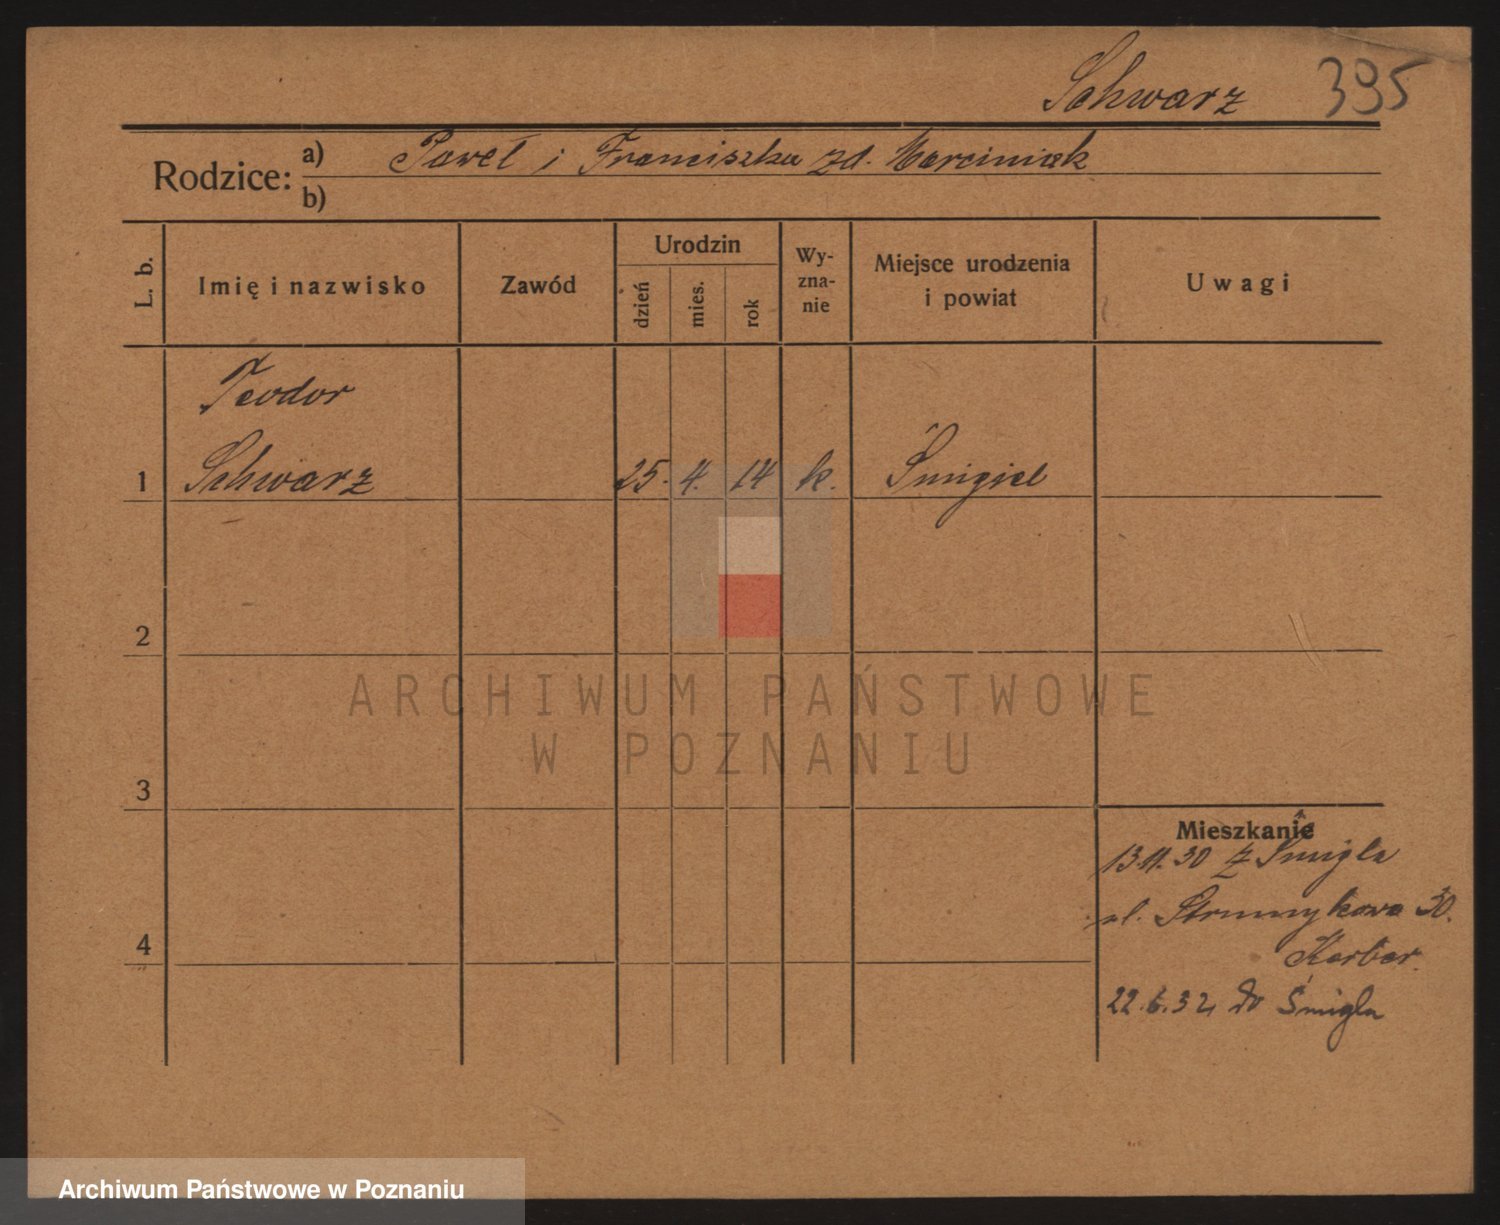 Schwarz 395
Rodzice: a) Paweł i Franciszka zd. Marciniak
b)
L. b. Imię i nazwisko Zawód Urodzin dzień mies. rok Wy-zna-nie Miejsce urodzenia i powiat Uwagi
Teodor
1 Schwarz 25. 4. 14 k. Śmigiel
2
ARCHIWUM PAŃSTWOWE
W POZNANIU
3
Mieszkanie
13.11.30 z Śmigla
ul. Strumykowa 30.
Kerber.
4
22.6.32 do Śmigla
Archiwum Państwowe w Poznaniu